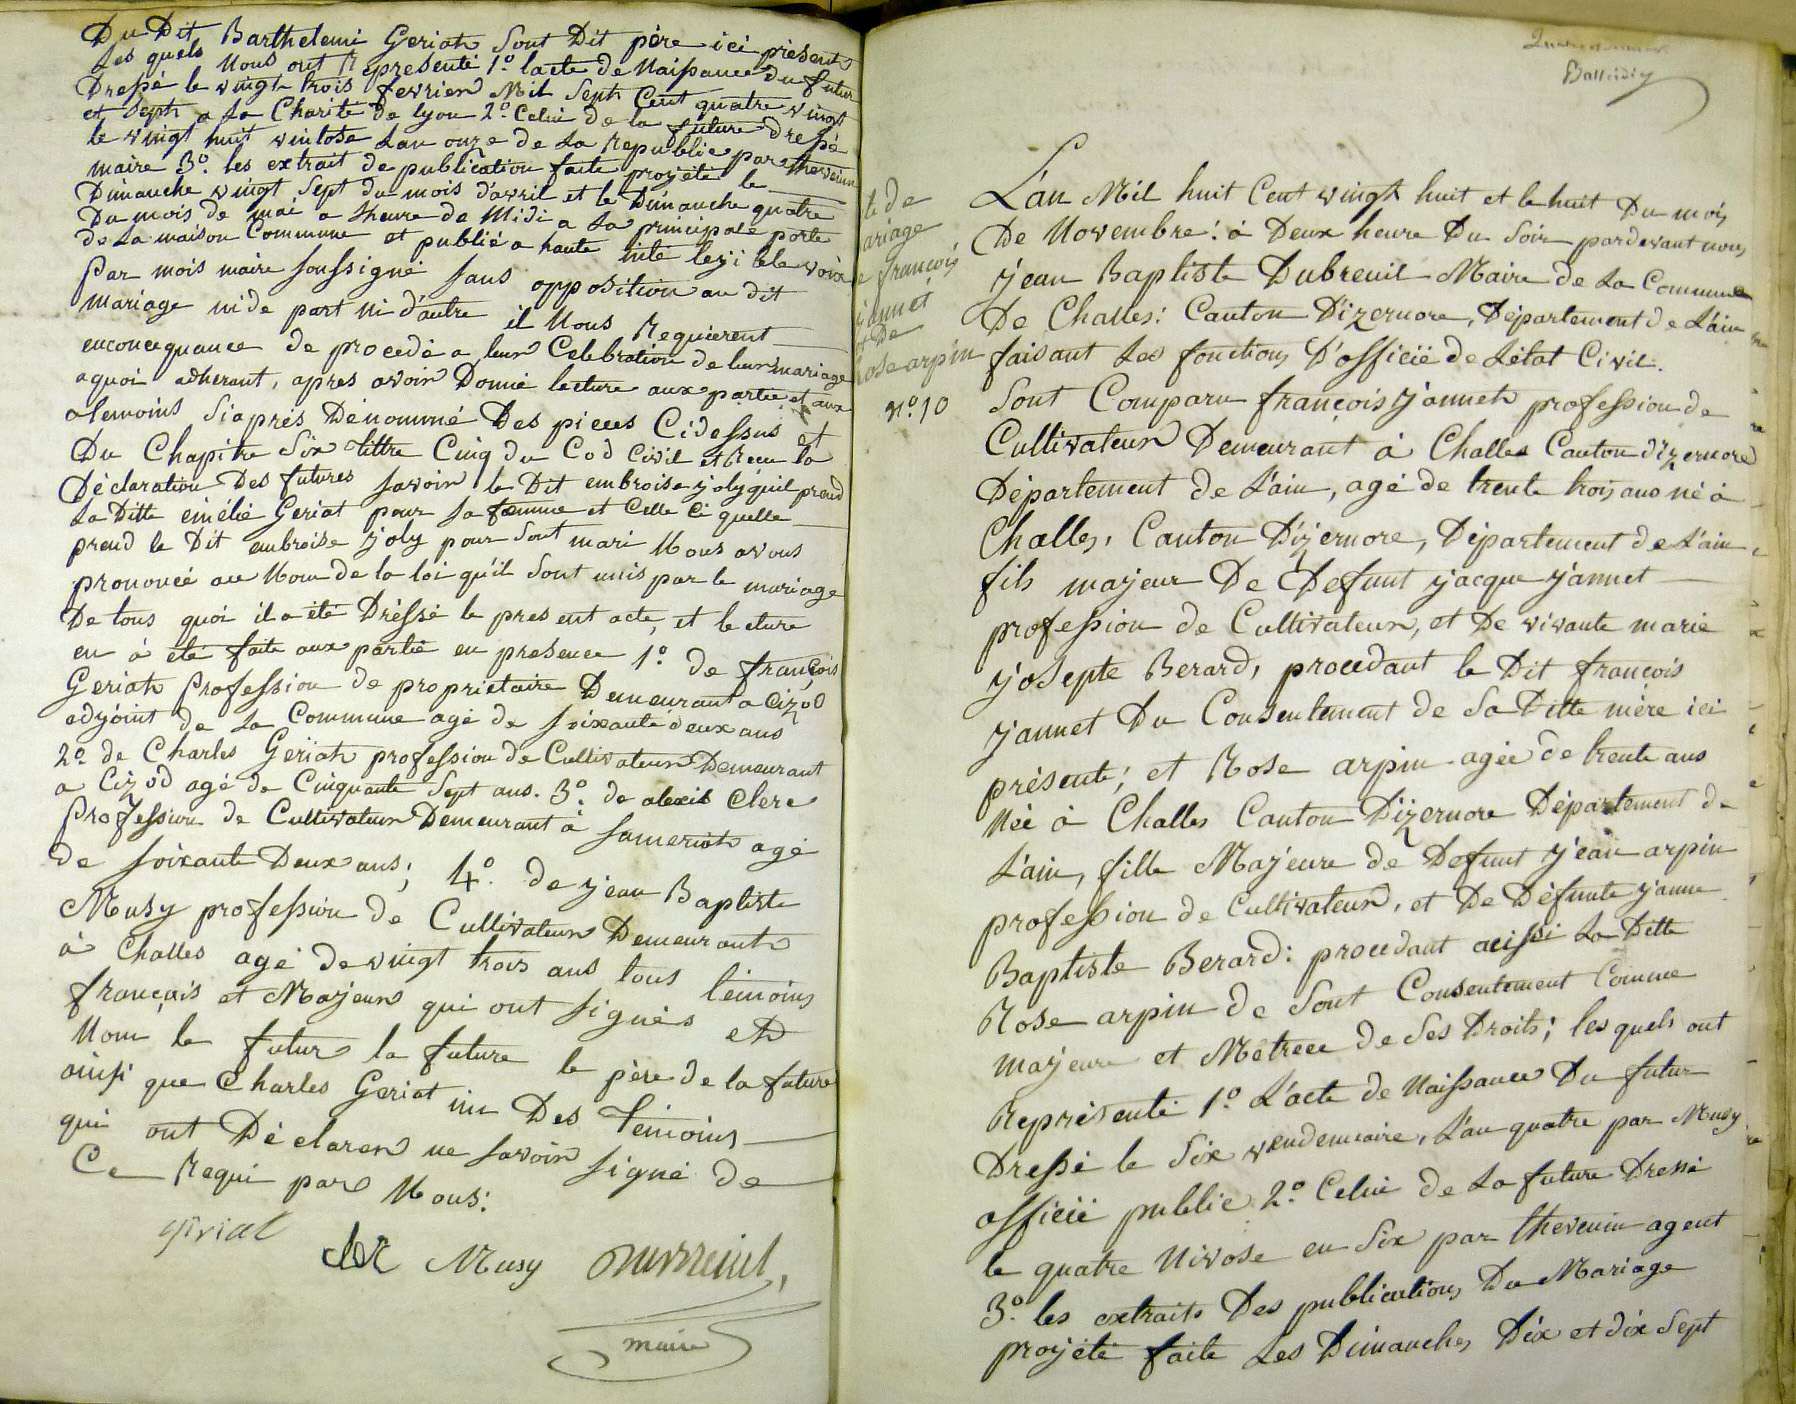 Du Dit Barthelemi Geriat Sont Dit père ici présents
Les quels Nous ont Representé 1.o lacte de Naissance du futur
Dressé le vingt trois fevrier Mil Sept Cent quatre vingt
et Sept a La Charité de lyon 2.o Celui de la future dressé
le vingt huit vintose Lan onze de La Republic par thevenin
maire 3.o les extrait de publication faite projété le
Dimanche vingt Sept du mois d'avril et le Dimanche quatre
Du mois de mai a Lheure de Midi a La principale porte
de La maison Commune et publié a haute inteleyible voix
Par mois maire Soussigné Sans opposition au dit
mariage ni de part Ni d'autre il Nous Requierent
enconcequance de procedé a leur Celebration de leur mariage
aquoi adherant, apres avoir Donné lecture aux partie et aux
alemoins Siaprés Dénommé Des pieces Cidessus et
Du Chapitre Six tittre Cinq du Cod Civil et Recu la
Déclaration Des futures Savoir le Dit embroise joly quil prend
La Ditte émélie Geriat pour Sa femme et Celle Ci quelle
prend le Dit embroise joly pour Sont mari Nous avons
prononcé au Nom de la loi qu'il Sont unis par le mariage
De tous quoi il a été Dréssé le present acte, et lecture
en à été faite aux partie en presence 1.o de françois
Geriat Profession de propriétaire Demeurant a Cizod
adjoint de La Commune agé de Soixante deux ans
2.o de Charles Geriat profession de Cultivateur Demeurant
a Cizod agé de Cinquante Sept ans. 3.o de alexis Clerc
Profession de Cultivateur Demeurant à Sameriat agé
de Soixante Deux ans; 4.o de jean Baptiste
Musy profession de Cultivateur Demeurant
à Challes agé de vingt trois ans tous témoins
français et Majeur qui ont Signés et
Nom le futur la future le père de la future
ainsi que Charles Geriat un Des Témoins
qui ont Déclarer ne Savoir Signé de
Ce Requi par Nous:
Clerc Musy Dubreuil,
maire
Balleidier
te de
ariage
e françois
jannet
et De
Rose arpin
N.o 10
L'an Mil huit Cent vingt huit et le huit Du mois
De Novembre: à Deux heure Du Soir pardevant nous
jean Baptiste Dubreuil Maire de La Commune
De Challes: Canton D'izernore, Département de L'ain
faisant Les fonctions D'officié de Létat Civil.
Sont Comparu françois jannet profession de
Cultivateur Demeurant à Challes Canton d'izernore
Département de L'ain, agé de trente trois ans né à
Challes, Canton D'izernore, Département de L'ain
fils majeur De Défunt jacque jannet
profession de Cultivateur, et De vivante marie
josepte Berard, procedant le Dit françois
jannet Du Consentement de Sa Ditte mère ici
présente; et Rose arpin agée de trente ans
Née à Challes Canton D'izernore Département de
L'ain, fille Majeure de Defunt jean arpin
profession de Cultivateur, et De Défunte janne
Baptiste Berard: procedant aussi La Ditte
Rose arpin de Sont Consentement Comme
majeure et Métrece de Ses Droits; les quels ont
Représenté 1.o L'acte de Naissance Du futur
Dressé le Six vendemiaire, L'an quatre par Musy
officié public 2.o Celui de La future Dressé
le quatre Nivose en Six par thevenin agent
3.o les extraits Des publications Du Mariage
projété faite Les Dimanches Dix et dix Sept